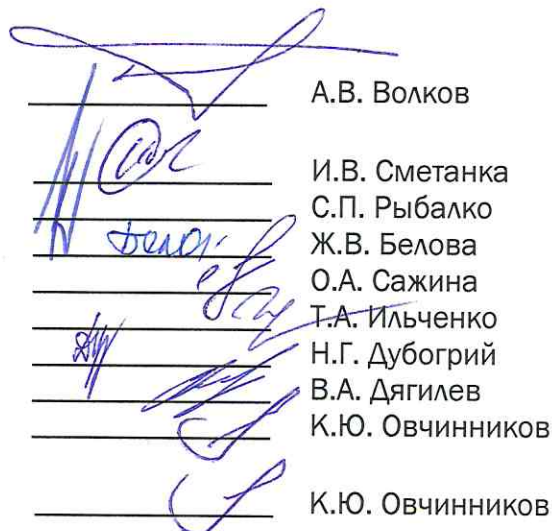 А.В. Волков
И.В. Сметанка
С.П. Рыбалко
Ж.В. Белова
О.А. Сажина
Т.А. Ильченко
Н.Г. Дубогрий
В.А. Дягилев
К.Ю. Овчинников
К.Ю. Овчинников